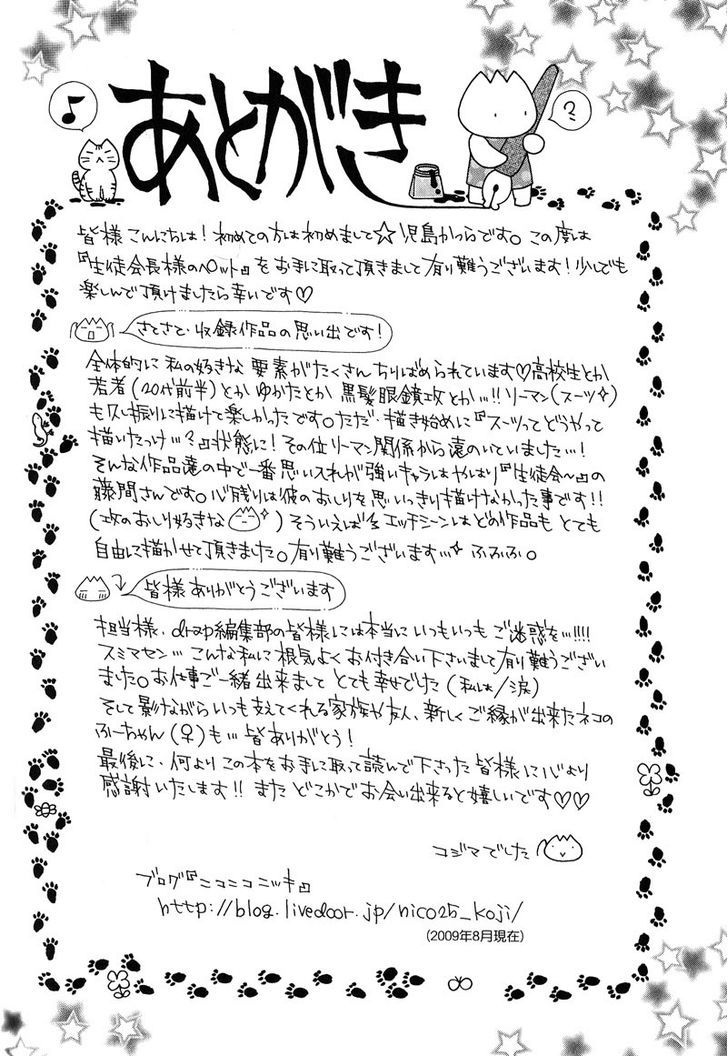 あとがき
♪
?
皆様こんにちは!初めての方は初めまして☆児島かつらです。この度は
『生徒会長様のペット』をお手に取って頂きまして有り難うございます!少しでも
楽しんで頂けましたら幸いです♡
さてさて・収録作品の思い出です!
全体的に私の好きな要素がたくさんちりばめられています♡高校生とか
若者(20代前半)とかゆかたとか黒髪眼鏡攻とか…!!リーマン(スーツ✧)
も久々振りに描けて楽しかったです。ただ・描き始めに『スーツってどうやって
描いたっけ…?』状態に!その位リーマン関係から遠のいていました…!
そんな作品達の中で一番思い入れが強いキャラはやはり『生徒会〜』の
藤間さんです。心残りは彼のおしりを思いっきり描けなかった事です!!
(攻のおしり好きな✧)そういえば今エッチシーンはどの作品もとても
自由に描かせて頂きました。有り難うございます…✧ふふふ。
皆様ありがとうございます
担当様、drap編集部の皆様には本当にいつもいつもご迷惑を…!!!!
スミマセン…こんな私に根気よくお付き合い下さいまして有り難うござい
ました。お仕事ご一緒出来ましてとても幸せでした(私は/涙)
そして影ながらいつも支えてくれる家族や友人、新しくご縁が出来たネコの
ふーちゃん(♀)も…皆ありがとう!
最後に、何よりこの本をお手に取って読んで下さった皆様に心より
感謝いたします!!またどこかでお会い出来ると嬉しいです♡♡
コジマでした
ブログ『ニコニコニッキ』
http://blog.livedoor.jp/nico25_koji/
(2009年8月現在)